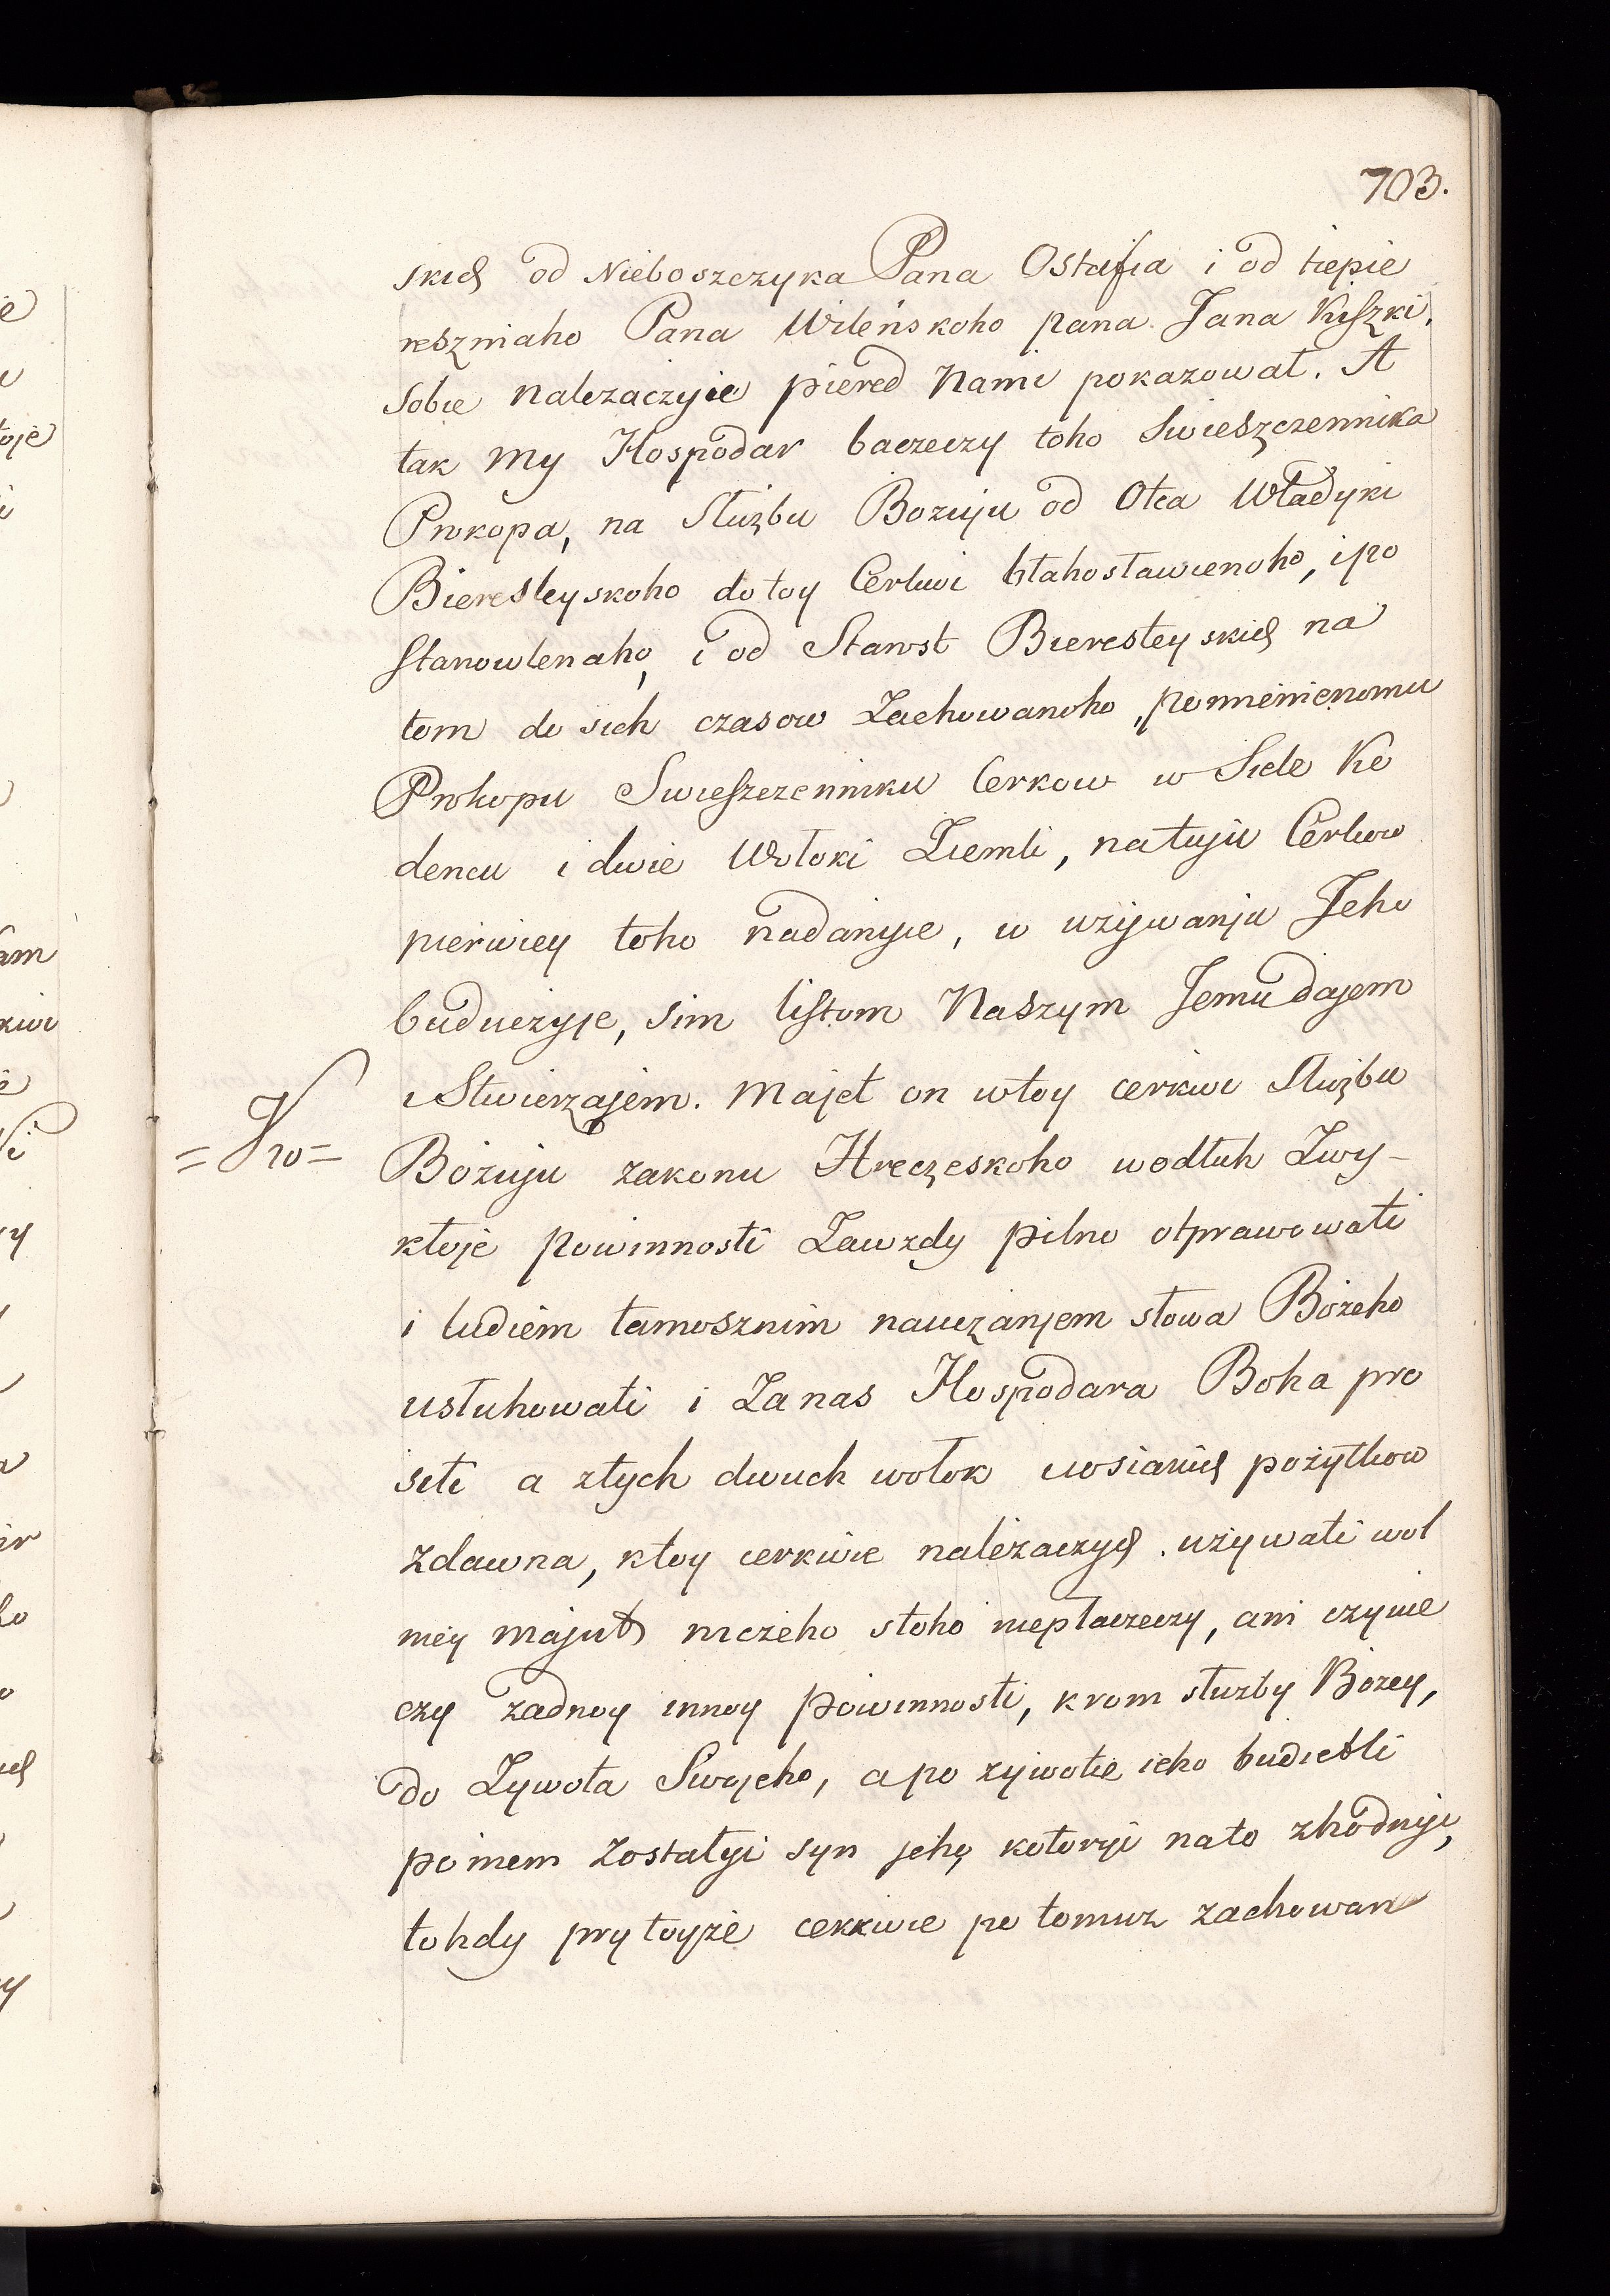 703.
skich od Nieboszczyka Pana Ostafia i od tiepie
reszniaho Pana Wileńskoho pana Jana Kiszki,
sobie nalezaczyie piered Nami pokazował. A
tak my Hospodar baczeczy toho Swieszczennika
Prokopa, na Służbu Bożuju od Otca Władyki
Bieresteyskoho do toy Cerkwi błahosławienoho, i po
stanowlenaho, i od Starost Bieresteyskich na
tom do sich czasow Zachowanoho, pomienienomu
Prokopu Swieszczenniku Cerkow w Siele Ko
dencu i dwie Wołoki Ziemli, na tuju Cerkow
pierwiey toho nadanyie, w używanju Jeho
buduczyje, sim listom Naszym Jemu dajem
i Stwierzajem. Majet on w toy cerkwi Służbu
Bożuju zakonu Hreczeskoho wodłuh Zwy-
kłoje powinnosti Zawzdy pilno otprawowati
i ludiem tamosznim nauczanjem słowa Bożeho
usłuhowati i Za nas Hospodara Boha pro
siti a z tych dwuch wołok i wsiakich pożytkow
zdawna, k toy cerkwie należaczych używati wol
mey majut niczeho s toho niepłaczeczy, ani czynie
czy żadnoy innoy powinnosti, krom służby Bożey,
do Żywota Swojeho, a po żywotie ieho budietli
po niem zostałyi syn jeho kotoryi na to zhodnyi,
tohdy pry toyże cerkwie po tomuż zachowan